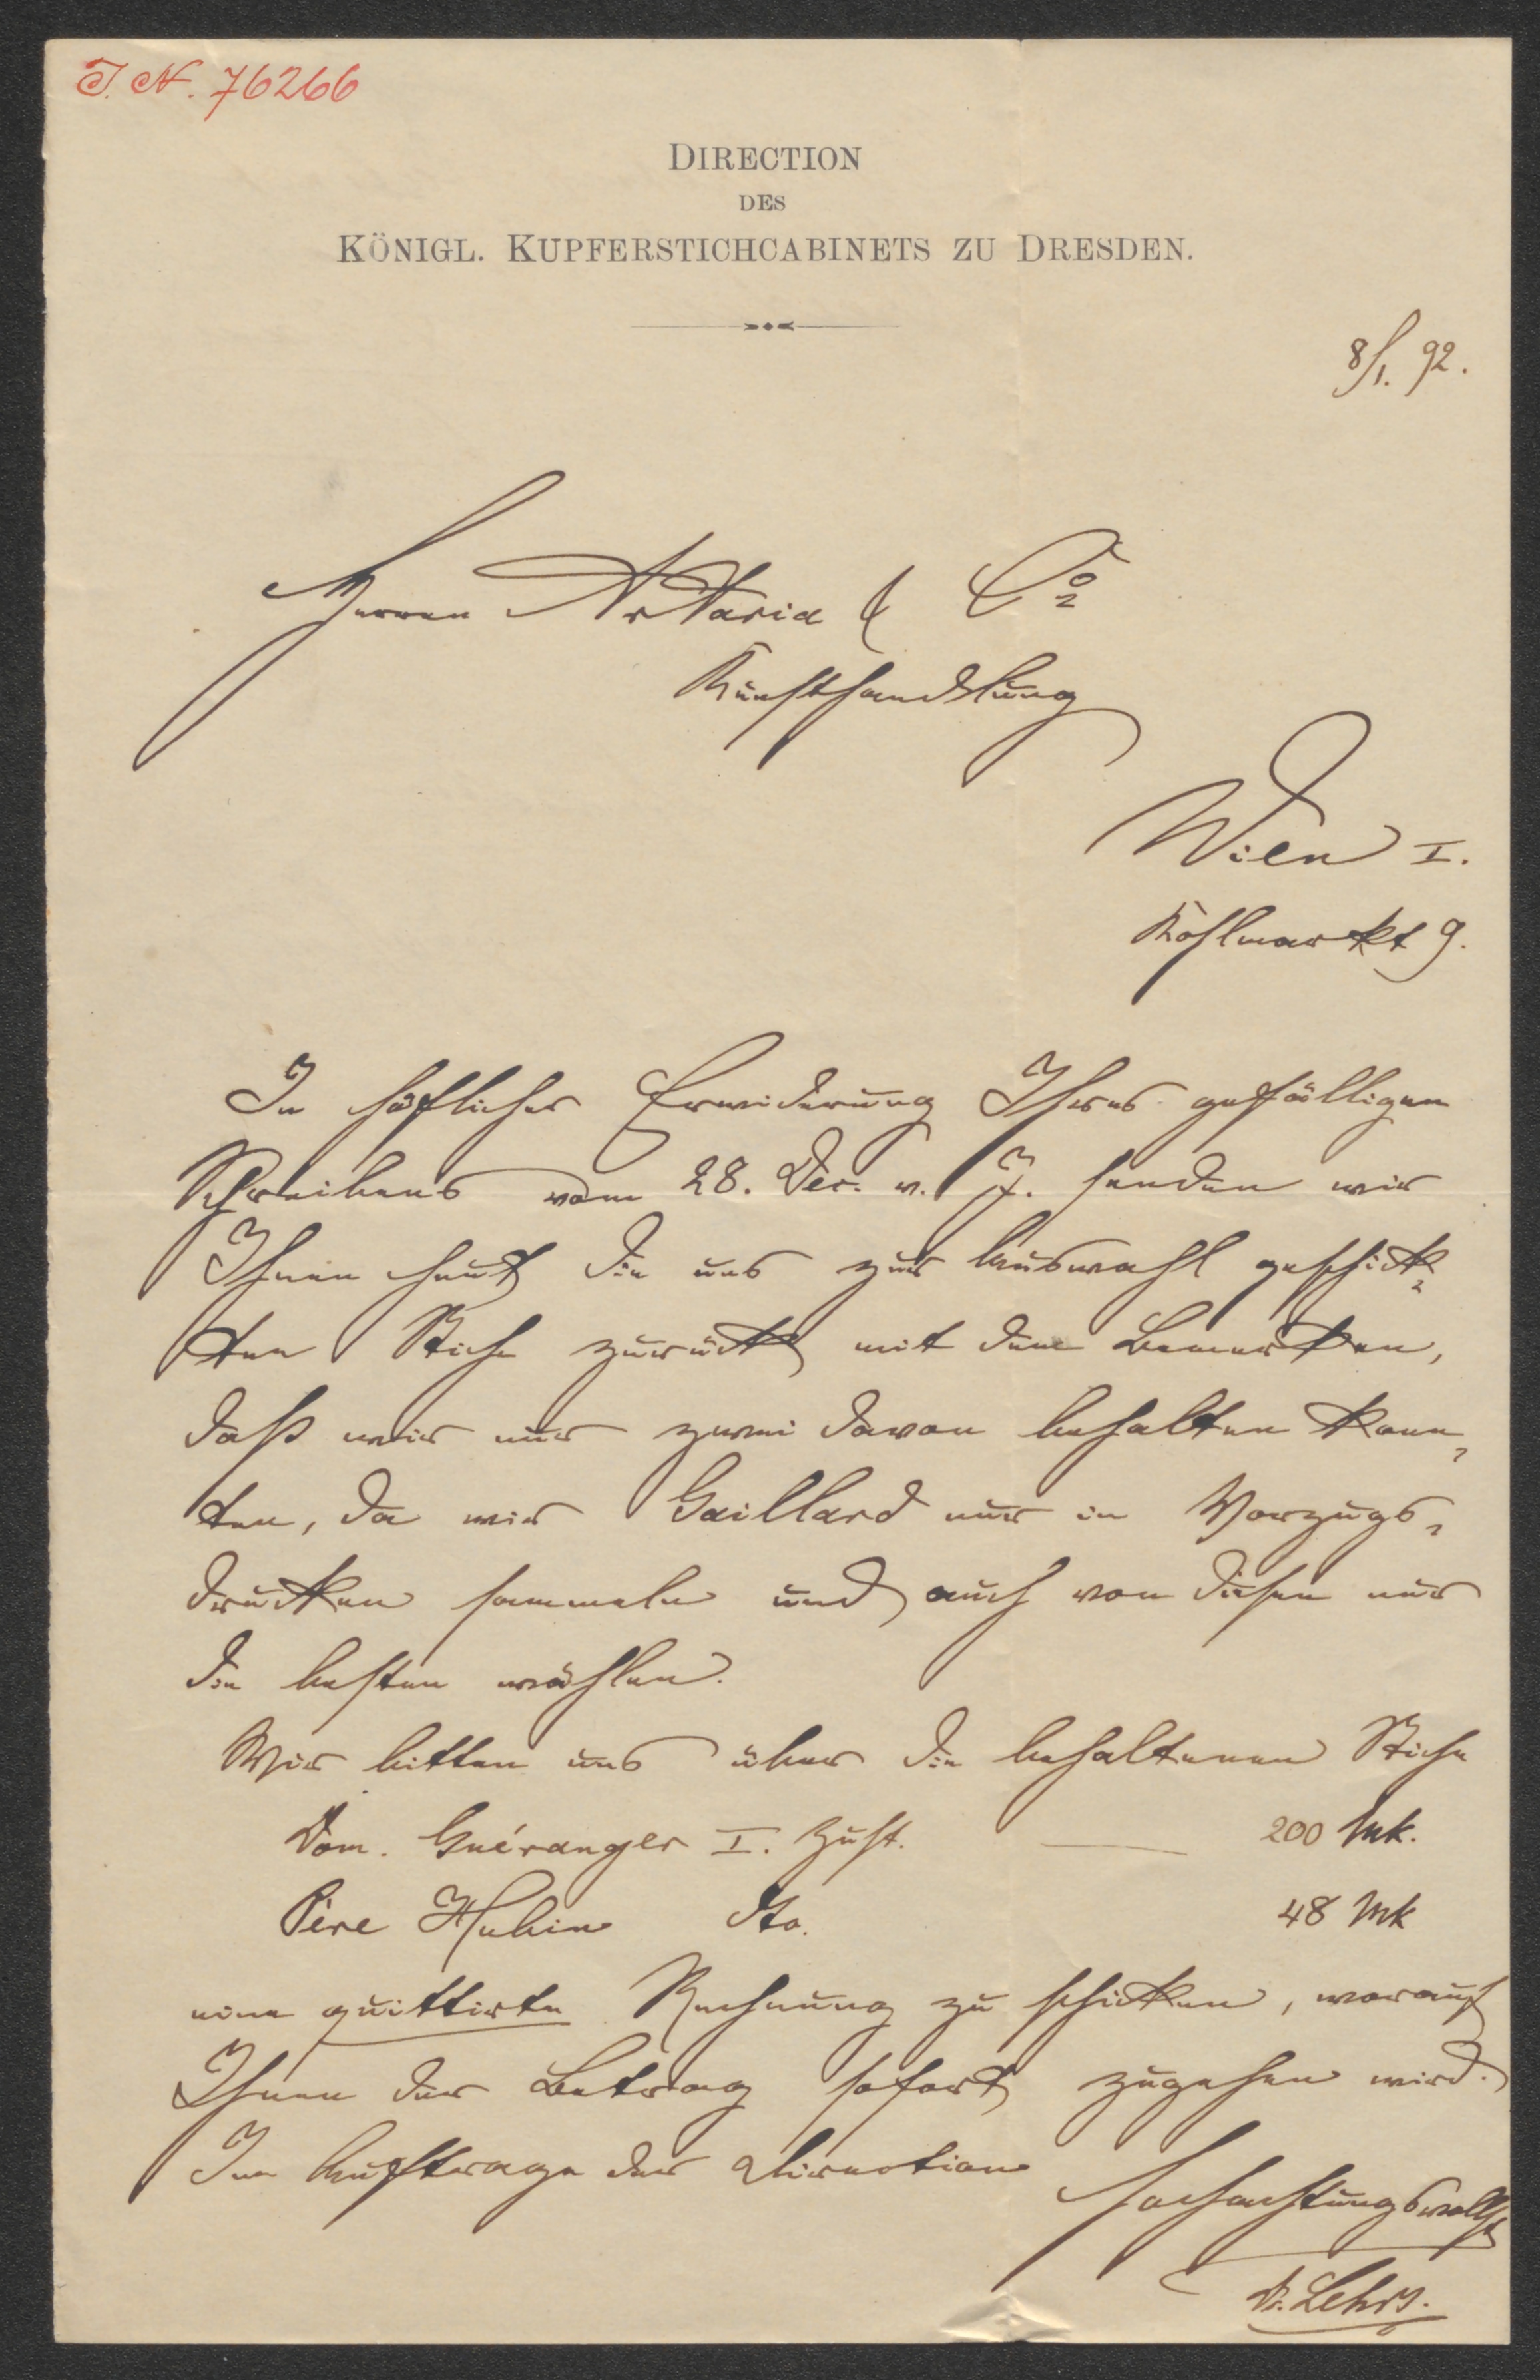 I. N. 76266
DIRECTION
DES
KÖNIGL. KUPFERSTICHCABINETS ZU DRESDEN.
8/1. 92.
Herren Artaria & Co
Kunsthandlung
Wien I.
Kohlmarkt 9.
In höflicher Erwiderung Ihres gefälligen
Schreibens vom 28. Dec. v. J. senden wir
Ihnen heut die uns zur Auswahl geschick-
ten Stiche zurück mit dem Bemerken,
daß wir nur zwei davon behalten konn-
ten, da wir Gaillard nur in Vorzugs-
drucken sammeln und auch von diesen nur
die besten wählen.
Wir bitten uns über die behaltenen Stiche
Dom. Guéranger I. Zust. — 200 Mk.
Père Hubin dto. 48 Mk
eine quittirte Rechnung zu schicken, worauf
Ihnen der Betrag sofort zugehen wird.
Im Auftrage der Direction
Hochachtungsvollst
Dr. Lehrs.